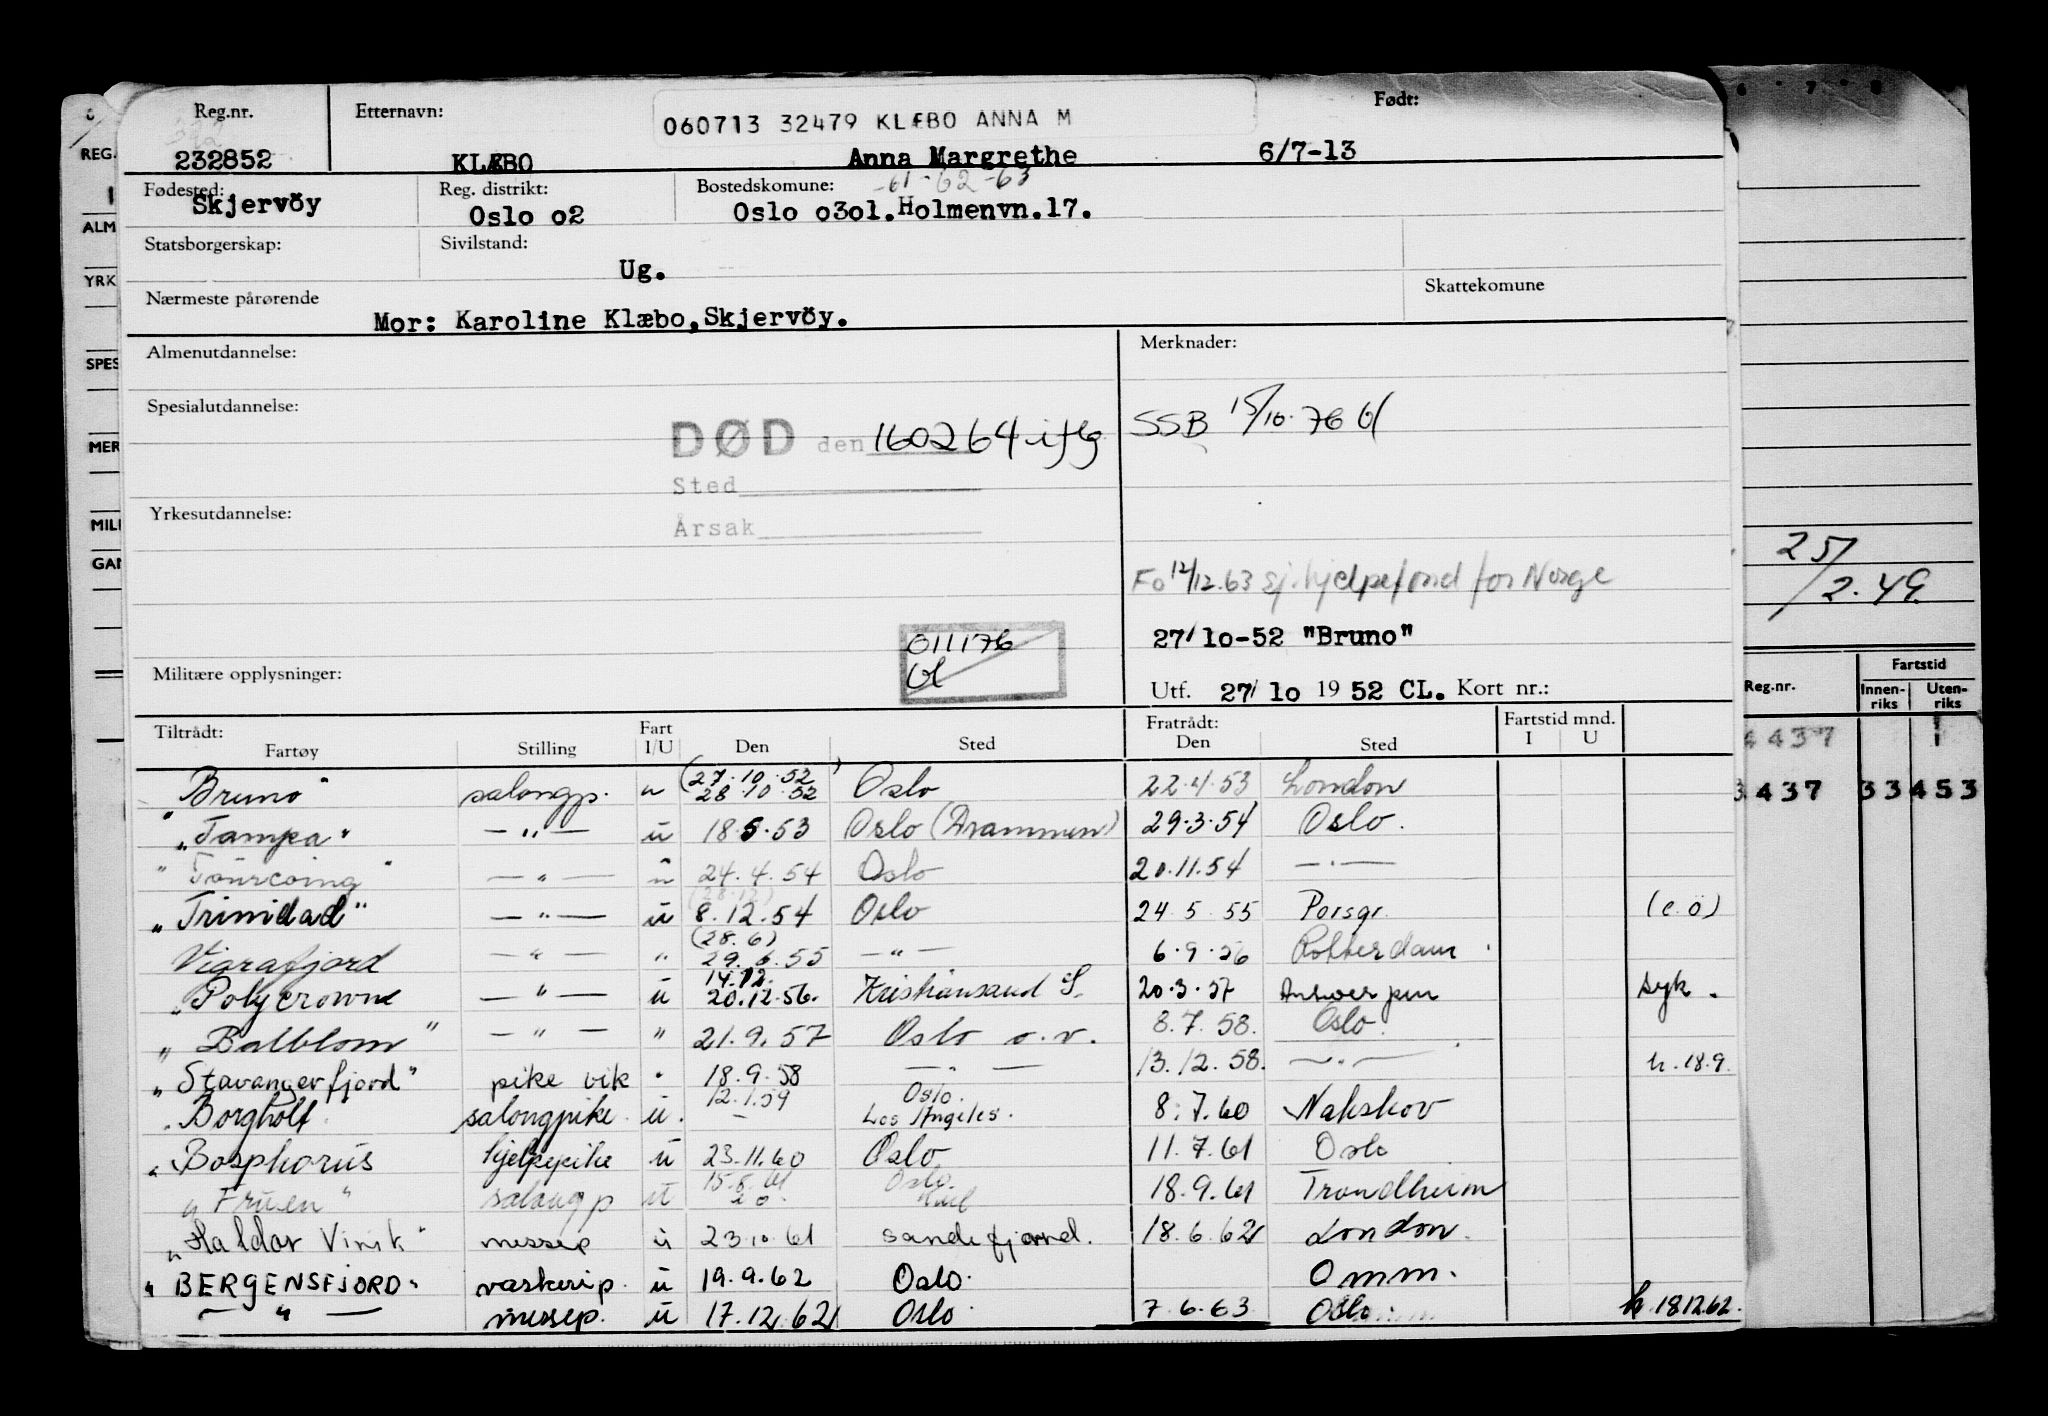 Reg.nr. Etternavn: 060713 32479 KLÆBO ANNA M Født:
232852 KLÆBO Anna Margrethe 6/7-13
Fødested: Reg. distrikt: Bostedskomune: -61-62-63
Skjervöy Oslo o2 Oslo o3o1. Holmenvn.17.
Statsborgerskap: Sivilstand:
Ug.
Nærmeste pårørende Skattekomune
Mor: Karoline Klæbo, Skjervöy.
Almenutdannelse: Merknader:
Spesialutdannelse:
DØD den 160264 iflg SSB 15/10.76
Sted
Yrkesutdannelse:
Årsak
Fo 12/12.63 sj.hjelpefond for Norge
011176
27/10-52 "Bruno"
Militære opplysninger:
Utf. 27/ 10 1952 CL. Kort nr.:
Tiltrådt: Fart Fratrådt: Fartstid mnd.
Fartøy Stilling I/U Den Sted Den Sted I U
"Bruno" salongp. u (27.10.52) 28.10.52 Oslo 22.4.53 London
"Tampa" —"— u 18.5.53 Oslo (Drammen) 29.3.54 Oslo.
"Tourcoing" —"— u 24.4.54 Oslo 20.11.54 —"—
"Trinidad" —"— u (28.12) 8.12.54 Oslo 24.5.55 Porsgr. (e.ö)
Vigrafjord —"— " (28.6) 29.6.55 —"— 6.9.56 Rotterdam
"Polycrown —"— u 14.12. 20.12.56. Kristiansand S. 20.3.57 Antwerpen syk.
"Balblom" —"— " 21.9.57 Oslo o.v. 8.7.58. Oslo.
"Stavangerfjord" pike vik " 18.9.58 —"— 13.12.58. —"— h.18.9.
"Borgholt salongpike u. 12.1.59 — Oslo. Los Angeles. 8.7.60 Nakskov
"Bosphorus hjelpepike u 23.11.60 Oslo 11.7.61 Oslo
"Fruen" salongp u 15.8.61 20. Oslo. 18.9.61 Trondheim
"Haldor Virik" messep u 23.10.61 Sandefjord. 18.6.62 London.
"BERGENSFJORD" vaskerip. u 19.9.62 Oslo. Omm.
—"— messep. u 17.12.62 Oslo. 7.6.63 Oslo. h.181262.
REG.
ALM
YRK
SPES
MER
MILI
GAN
6 - 7 -
25/2.49.
Fartstid
Reg.nr. Innen-riks Uten-riks
4437 1
3437 33 453